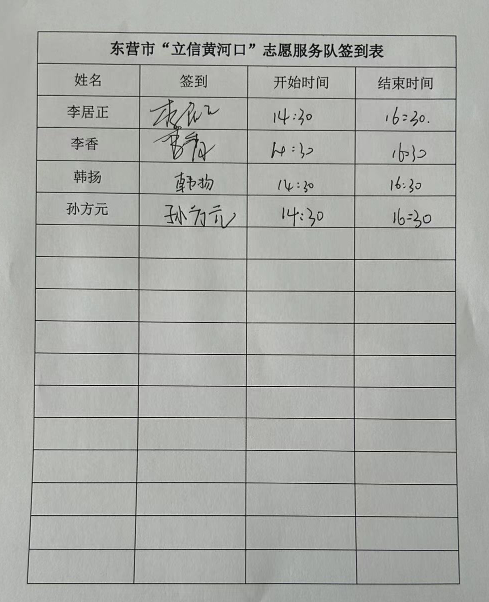 东营市“立信黄河口”志愿服务队签到表
姓名 签到 开始时间 结束时间
李居正 李居正 14:30 16:30.
李香 李香 14:30 16:30
韩扬 韩扬 14:30 16:30
孙方元 孙方元 14:30 16:30